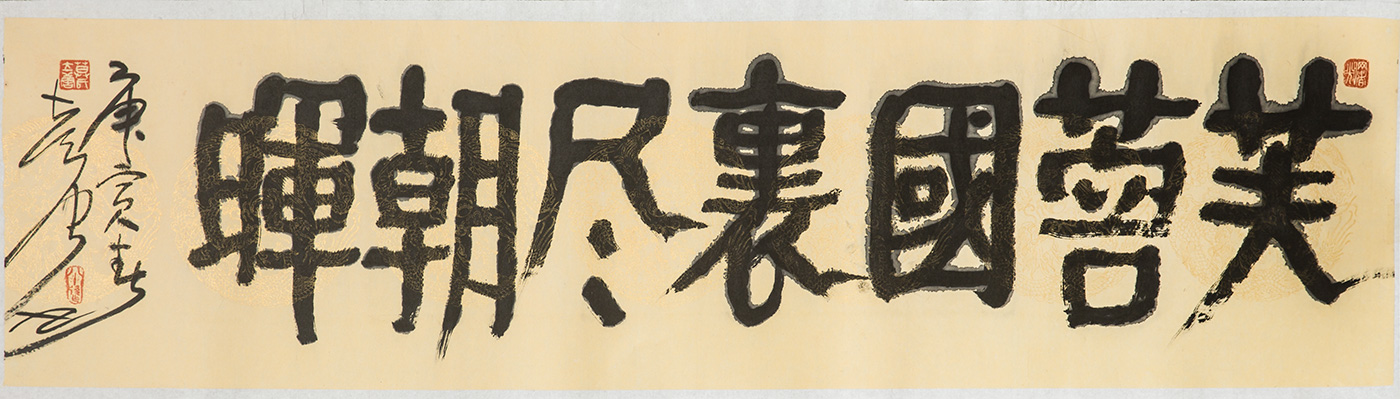 芙蓉國裏尽朝暉
庚寅春